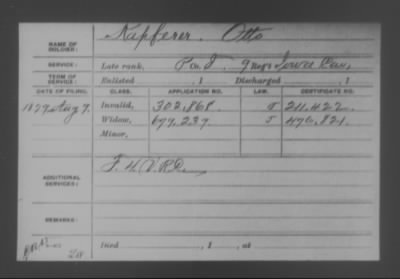 NAME OF SOLDIER: Kapferer, Otto
SERVICE: Late rank, P Co. I, 9 Reg't Iowa Cav,
TERM OF SERVICE: Enlisted , 1 Discharged , 1
DATE OF FILING. CLASS. APPLICATION NO. LAW. CERTIFICATE NO.
1879 Aug 7. Invalid, 302,868 211.422
Widow, 697,237 476,821
Minor,
ADDITIONAL SERVICES:
REMARKS:
Died , 1 , at